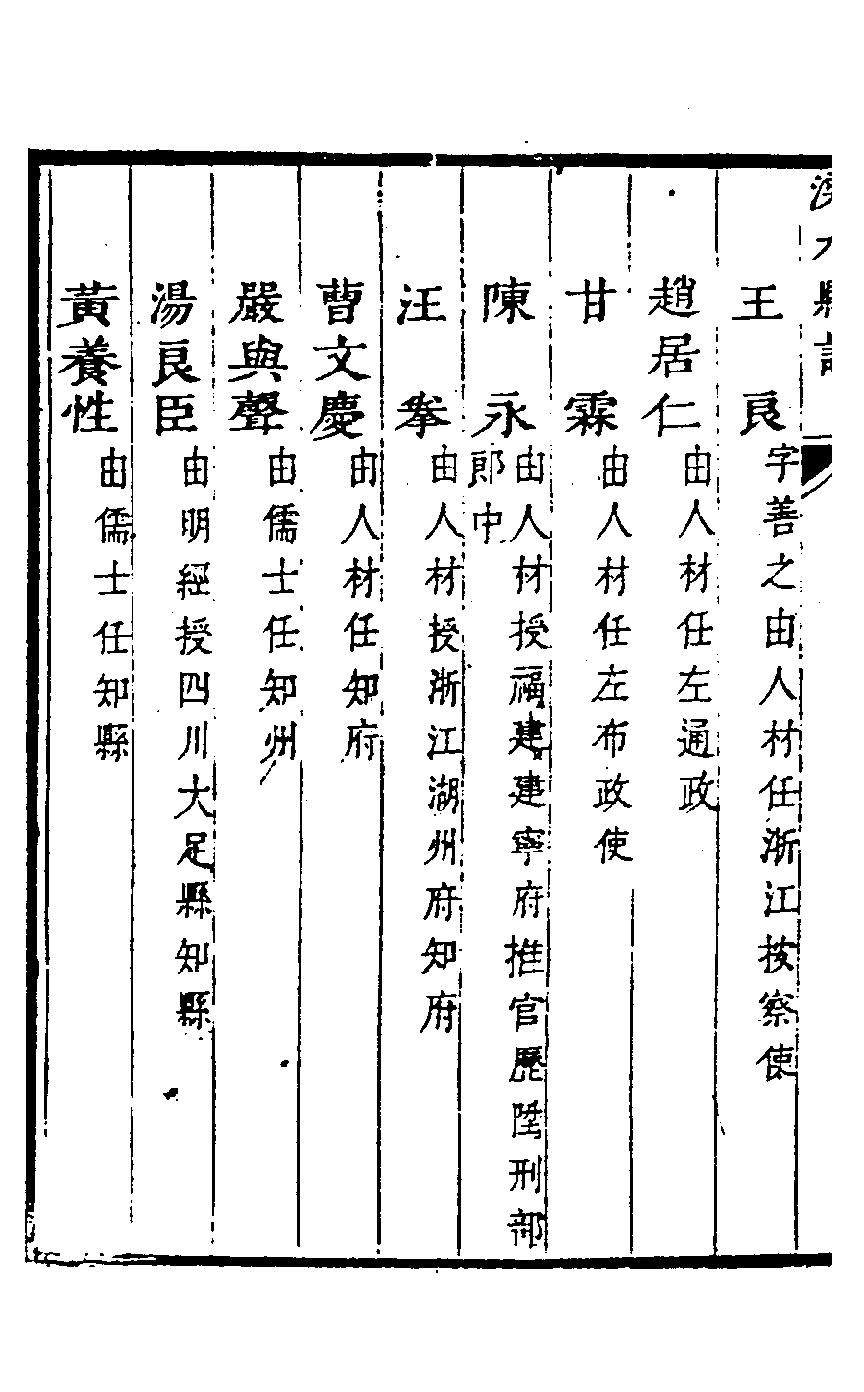 縣
王良 字善之由人材任浙江按察使
趙居仁 由人材任左通政
甘霖 由人材任左布政使
陳永 由人材授福建建寧府推官歷陞刑部
郎中
汪拳 由人材授浙江湖州府知府
曹文慶 由人材任知府
嚴與聲 由儒士任知州
湯良臣 由明經授四川大足縣知縣
黃養性 由儒士任知縣